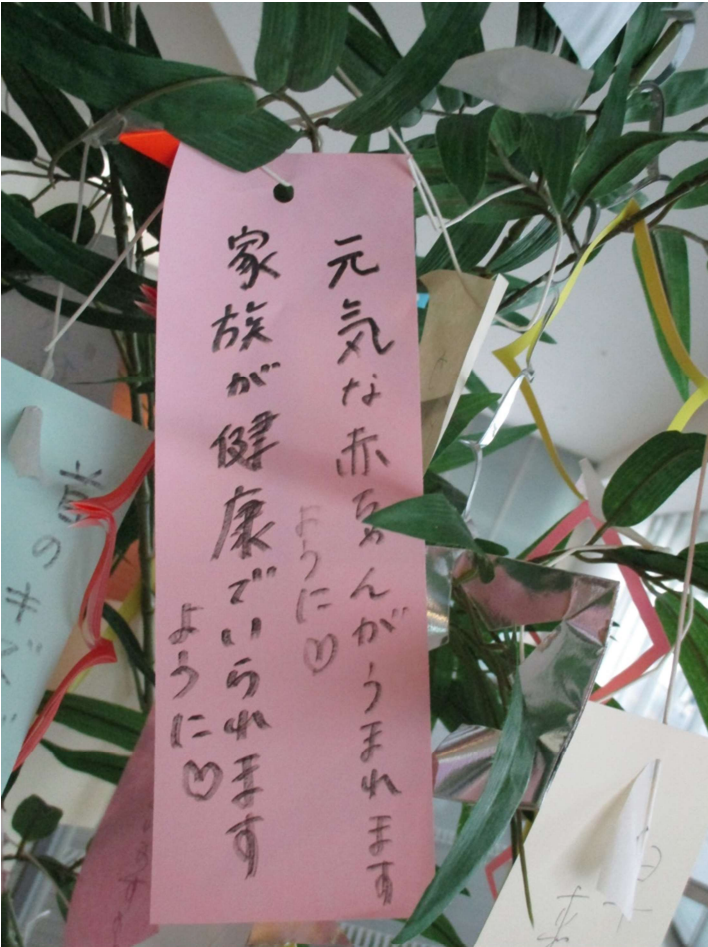 元気な赤ちゃんがうまれます
ように♡
家族が健康でいられます
ように♡
のキズ